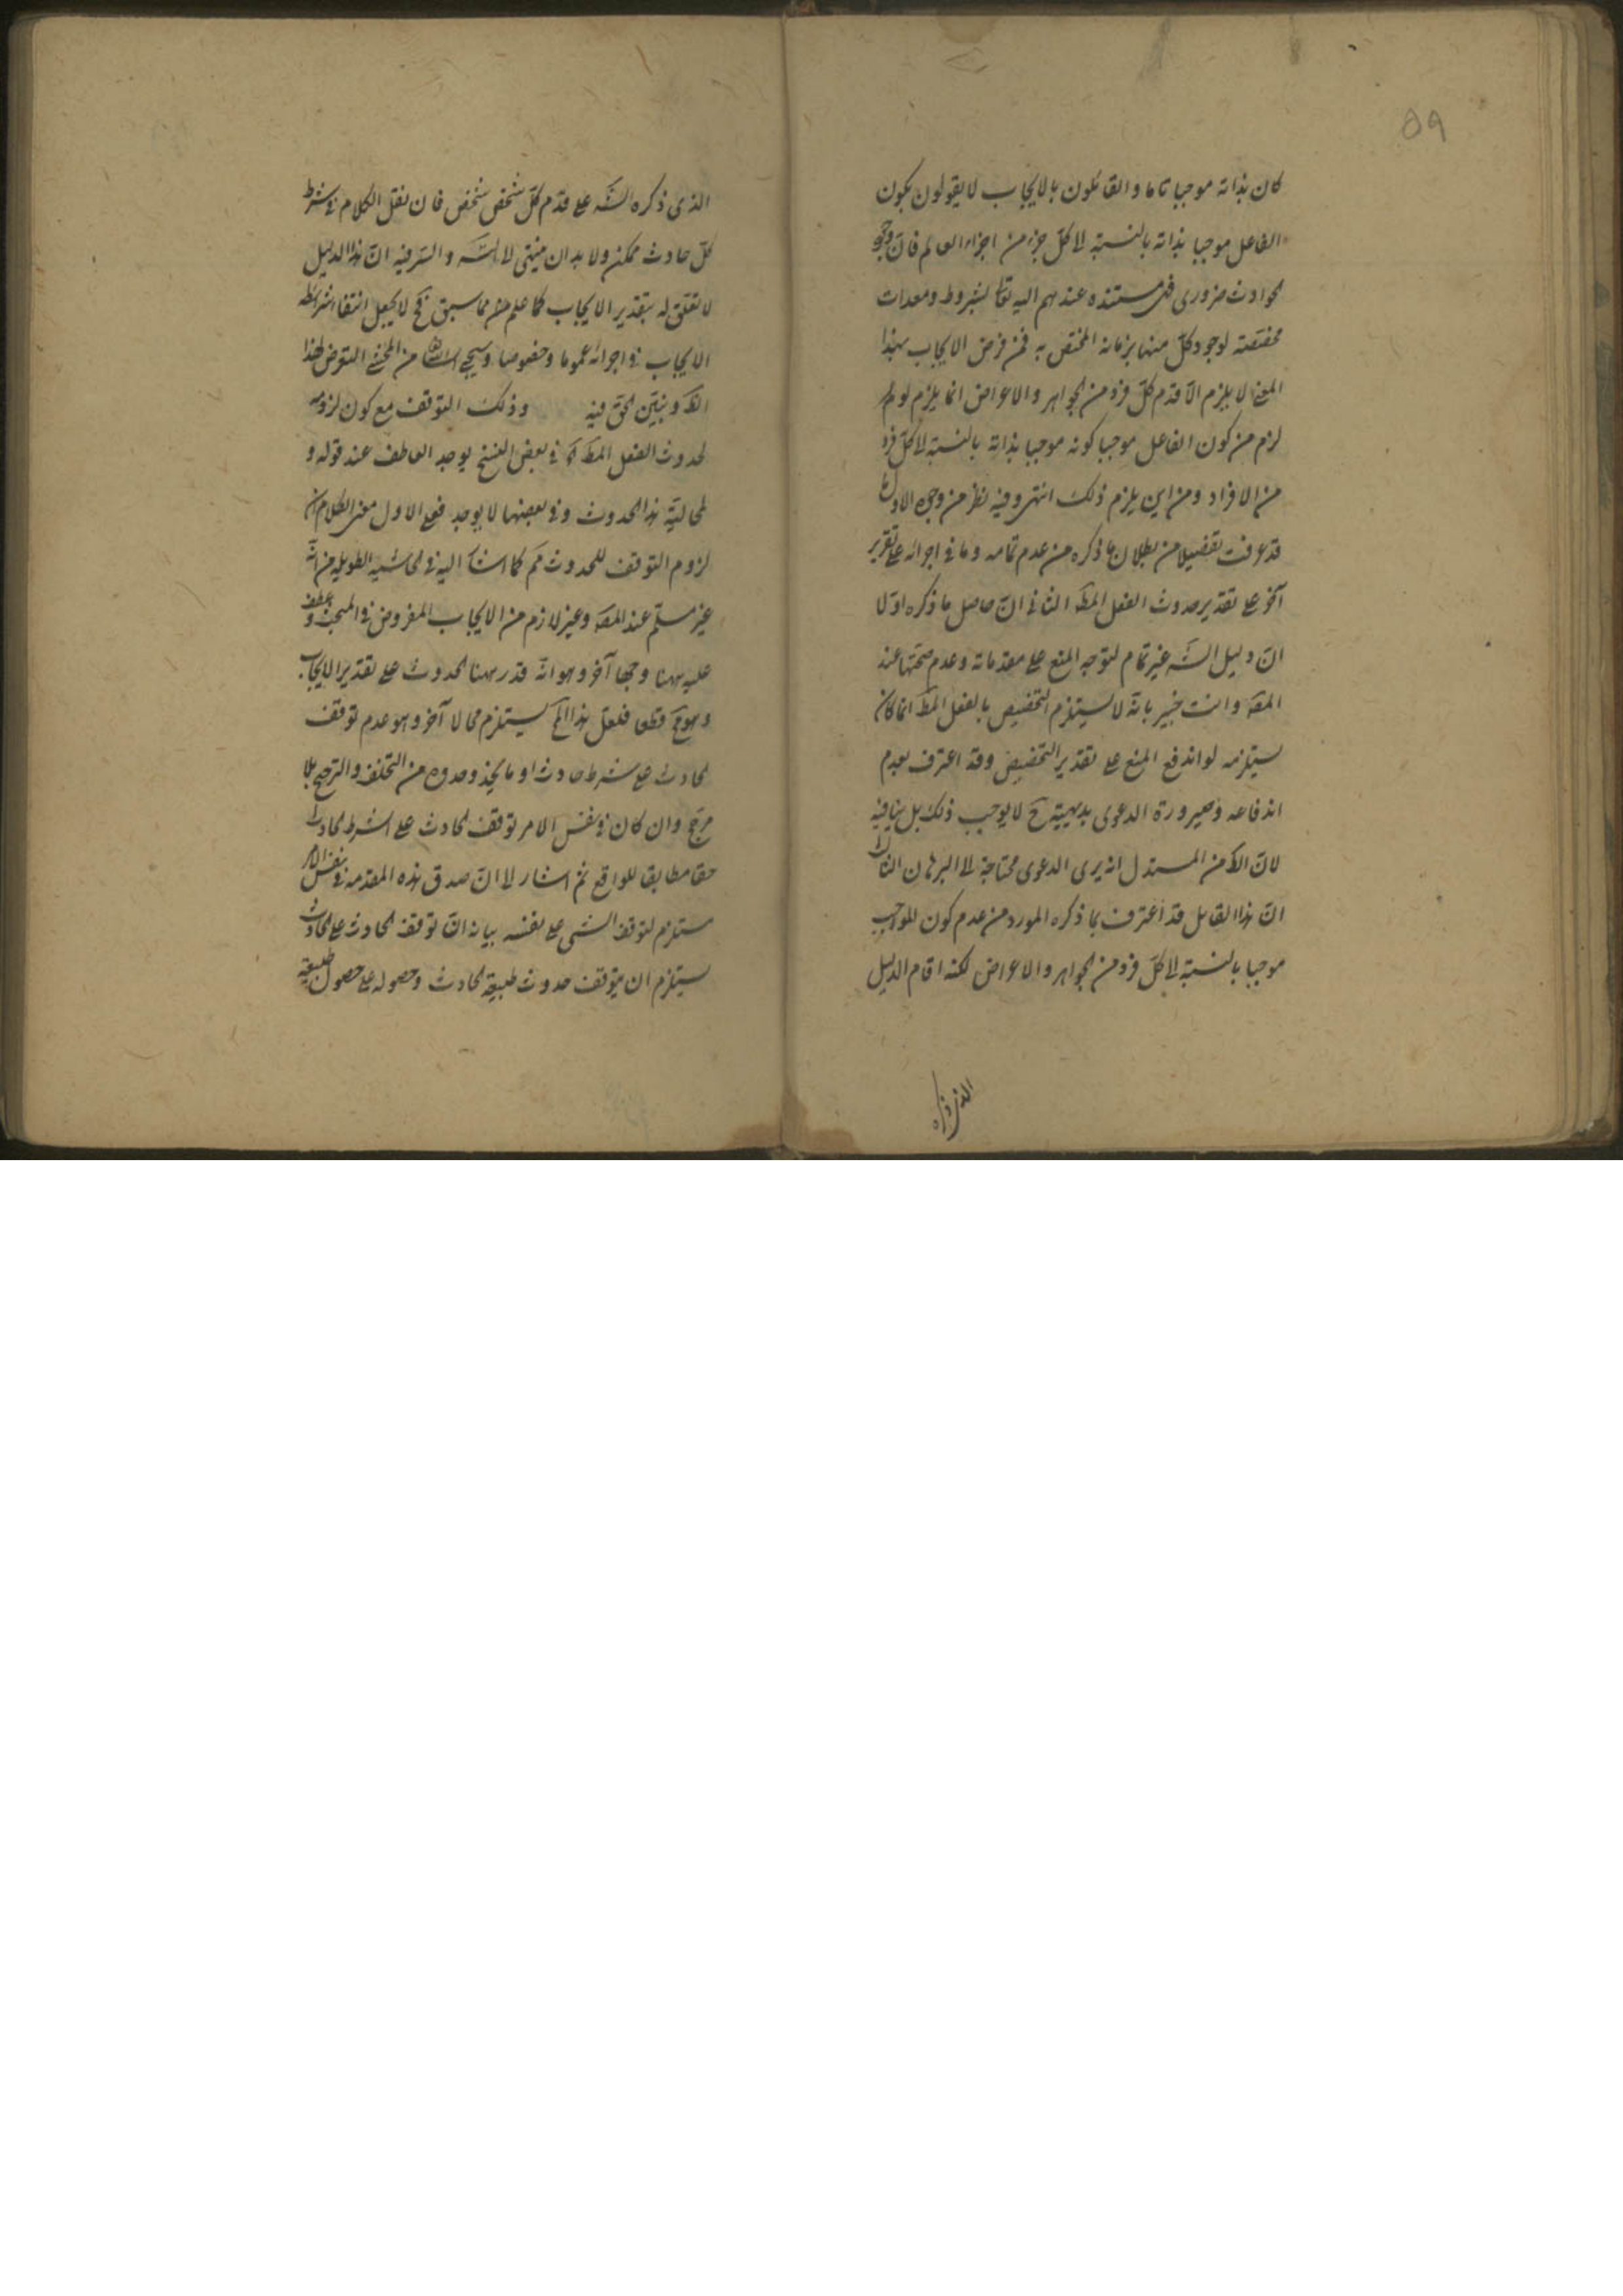 ٥٩
كان بذاته موجبا تاما والقائلون بالايجاب لا يقولون بكون
الفاعل موجبا بذاته بالنسبة لا كل جزء من اجزاء العالم فان وجود
الحوادث ضروري فهي مستندة عندهم اليه تعا بشروط ومعدات
مختصة لوجود كل منها بزمانه المختص به فمن فرض الايجاب بهذا
المعنى لا يلزم الا قدم كل فرد من الجواهر والاعراض انما يلزم لو
لزم من كون الفاعل موجبا كونه موجبا بذاته بالنسبة لا كل فرد
من الافراد ومن اين يلزم ذلك انتهى وفيه نظر من وجوه الاول
قد عرفت تفصيلا من بطلان ما ذكره من عدم تمامه وما في اجرائه على تقرير
آخر على تقدير حدوث الفعل المط الثاني ان حاصل ما ذكره اولا
ان دليل الش غير تمام لتوجه المنع على مقدماته وعدم صحتها عند
المص وانت خبير بانه لا يستلزم التخصيص بالفعل المط انما كان
يستلزمه لو اندفع المنع على تقدير التخصيص وقد اعترف بعدم
اندفاعه وصيرورة الدعوى بديهية ح لا يوجب ذلك بل ينافيه
لان الظ من المستدل انه يرى الدعوى محتاجة لا البرهان الثالث
ان هذا القايل قد اعترف بما ذكره المورد من عدم كون الموجب
موجبا بالنسبة لا كل فرد من الجواهر والاعراض لكنه اقام الدليل
الذي ذكره
الذي ذكره الش على قدم كل شخص شخص فان نقل الكلام في شرط
كل حادث ممكن ولا بد ان ينتهي لا الش والسر فيه ان هذا الدليل
لا تعلق له بتقدير الايجاب كما علم من مما سبق فح لا يجعل انتفا شرائط
الايجاب في اجرائه عموما وخصوصا وسيجي من المحشي التعرض لهذا
الظ ونبين الحق فيه وذلك التوقف مع كون لزومه
لحدوث الفعل المط في بعض النسخ يوجد العاطف عند قوله و
لمحالية هذا الحدوث وفي بعضها لا يوجد فعلى الاول معنى الكلام ان
لزوم التوقف للحدوث مم كما اشار اليه في الحاشية الطويلة من انه
غير مسلم عند المص وغير لازم من الايجاب المفروض في المبحث وعطف
عليه ههنا وجها آخر وهو انه قدر ههنا الحدوث على تقدير الايجاب
وهو مح قطعا فلعل هذا المح يستلزم محالا آخر وهو عدم توقف
الحادث على شرط حادث او ما يحذو حذوه من التخلف والترجيح بلا
مرجح وان كان في نفس الامر توقف الحادث على الشرط الحادث
حقا مطابقا للواقع ثم اشار لا ان صدق هذه المقدمة في نفس الامر
مستلزم لتوقف الشي على نفسه بيانه ان توقف الحادث على الحادث
يستلزم ان يتوقف حدوث طبيعة الحادث وحصوله على حصول طبيعة